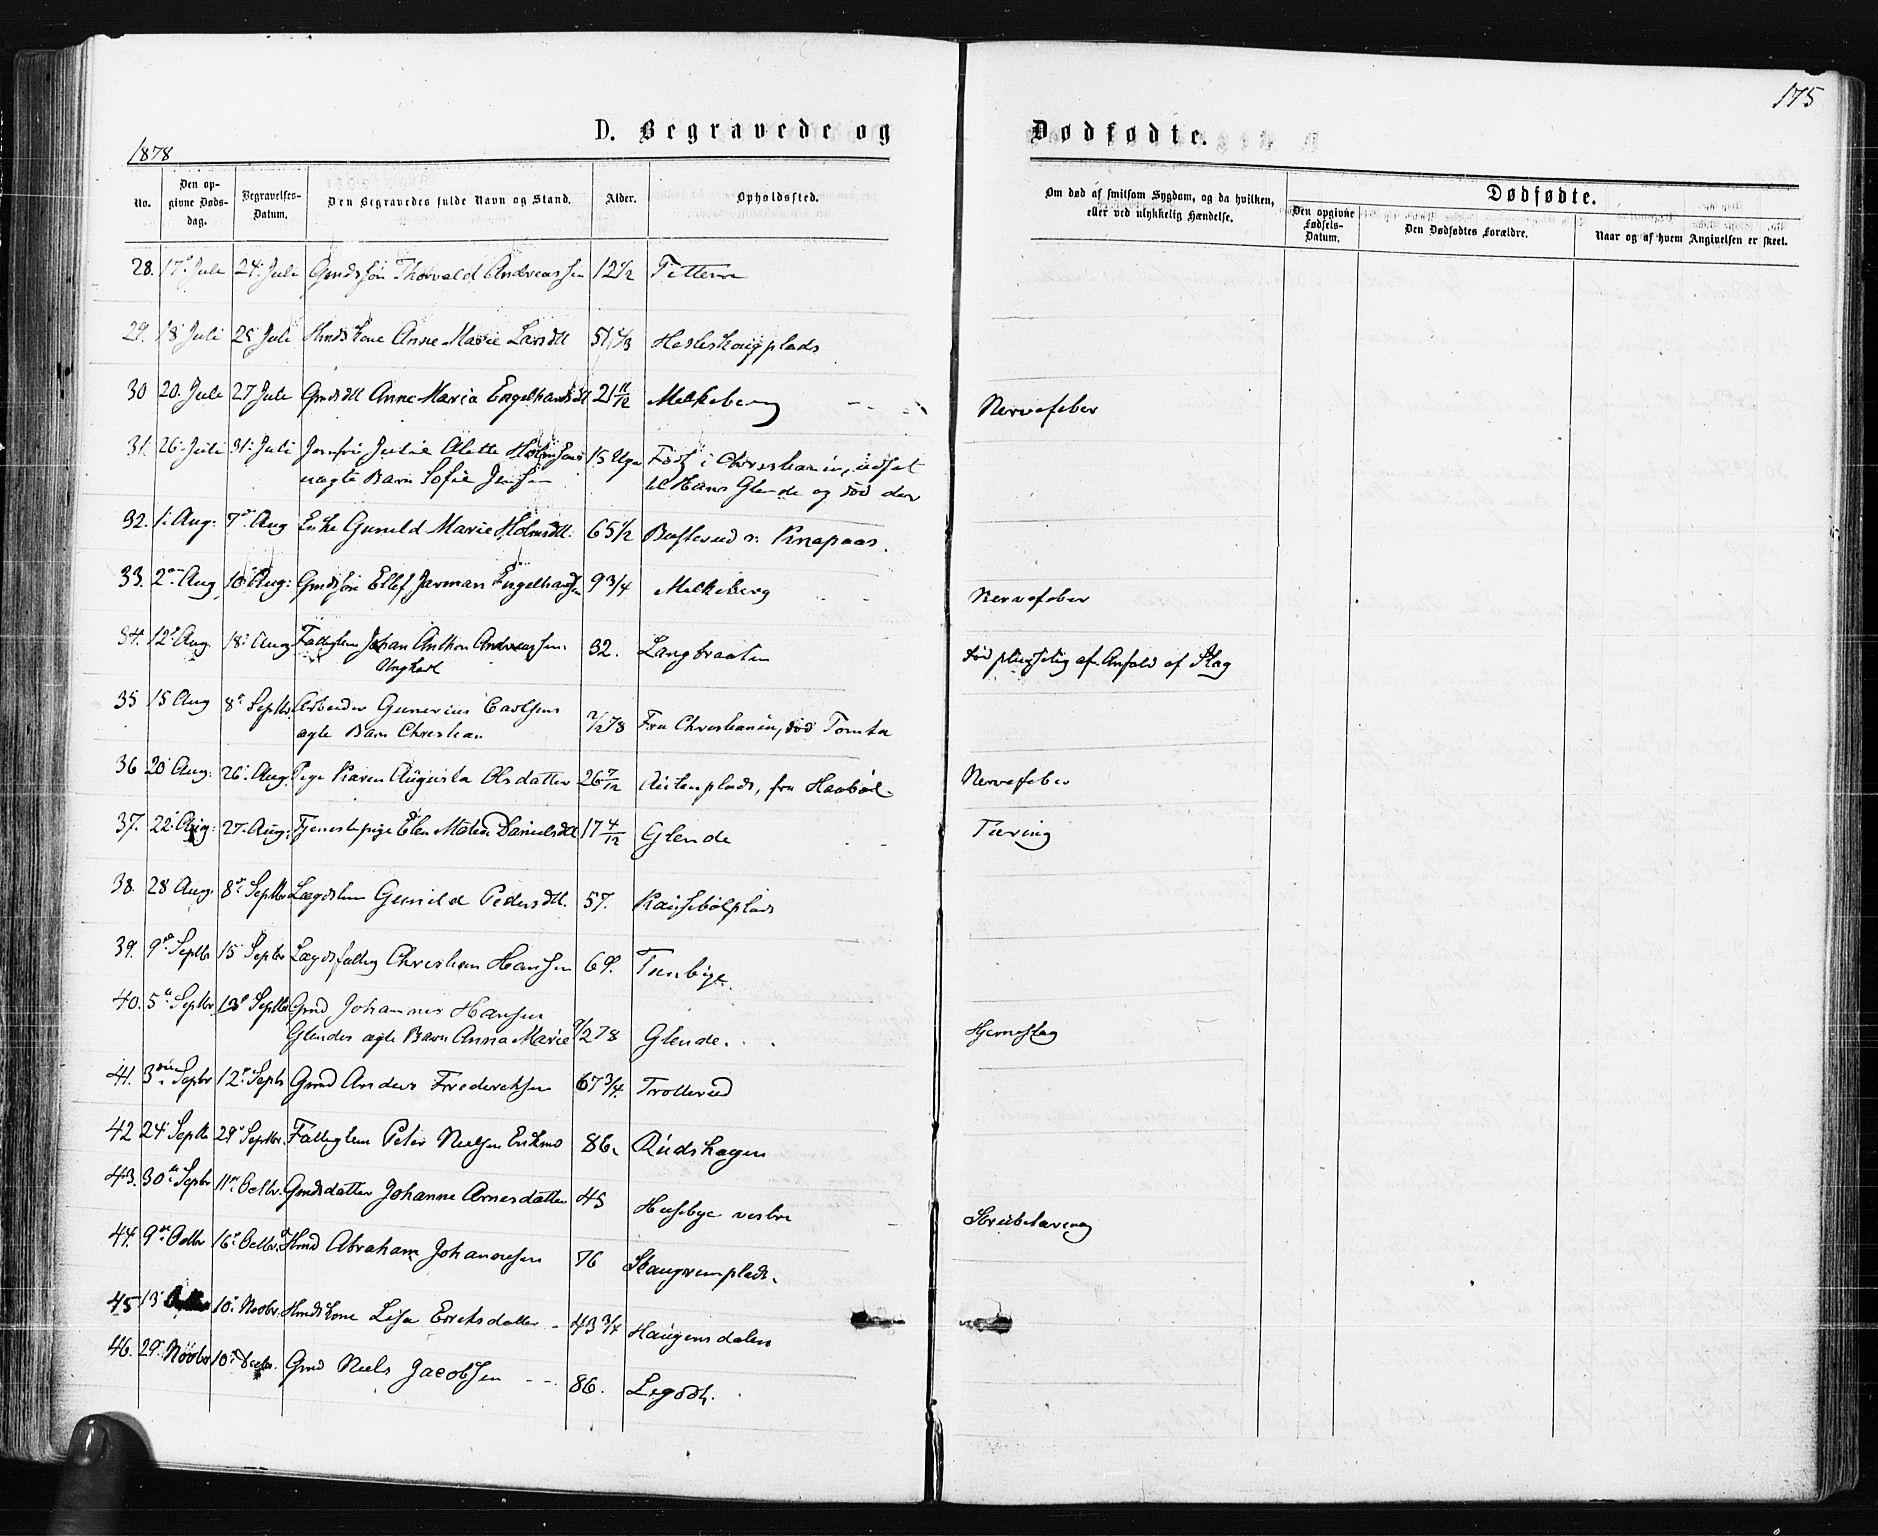 175
D. Begravede og Dødfødte.
1878
No. Den opgivne Dødsdag. Begravelses-Datum. Den Begravedes fulde Navn og Stand. Alder. Opholdssted. Om død af smitsom Sygdom, og da hvilken, eller ved ulykkelig Hændelse. Dødfødte.
Den opgivne Fødsels-Datum. Den Dødfødtes Forældre. Naar og af hvem Angivelsen er skeet.
28. 17 Juli 24 Juli Gmdssøn Thorvald Andreassen 12 1/2
29. 18 Juli 25 Juli Hmdskone Anne Marie Larsdtt Hesleskougplads
30 20. Juli 27 Juli Gmdsdtt Anne Maria Engelhardsdtt 21 11/12 Melkeberg Nervefeber
31. 26 Juli 31 Juli Jomfru Julie Alette
uægte Barn Sofie Jensen 15 Uger Født i Christiania, udsat
til Hans Glende og død der
32. 1. Aug: 7de Aug Enke Gunild Marie Holmsdtt. 65 1/2 Knapaas.
33. 2den Aug 10 Aug: Gmdssøn Ellef Herman Engelhardsen 9 3/4 Melkeberg Nervefeber
34. 12 Aug 18 Aug Fattiglem Johan Anthon Andreassen. 32. Langbraaten død pludselig af Anfald af Slag
Ungkarl
35 15 Aug 8de Septbr. Arbeider Gunerius Carlsens
ægte Barn Christian 78 Fra Christiania, død Tomta
36 20 Aug: 26 Aug. Pige Karen Augusta Olsdatter 26 7/12 fra Haabøl Nervefeber
37. 22 Aug: 27. Aug: Tjenestepige Elen Matea Danielsdtt 17 4/12 Glende Tæring
38. 28 Aug. 8de Septbr Lægdslem Gunild Pedersdtt. 57. Kausebølplads
39. 9de Septbr 15 Septbr Lægdsfattig Christian Hansen 69. Tunbye.
40. 5te Septbr. 13de Septbr Gmd Johannes Hansen
Glendes ægte Barn Anna Marie 78 Glende. Hjerneslag
41. 3die Septbr 12te Septbr Gmd Anders Frederiksen 67 3/4. Trollerud
42 24 Septbr 29 Septbr. Fattiglem Peter Nielsen Enkemd 86. Rudshagen
43. 30te Septbr 11te Octbr. Gmdsdatter Johanne Arnesdatter 45 Husebye vestre Strubetæring
44. 9de Octbr 16de Octbr. Hmd Abraham Johannesen 76
45 13 10de Novbr. Hmdskone Lisa Eriksdatter 43 3/4 Haugensdalen
46. 29. Novbr 10de Decbr. Gmd Niels Jacobsen 86.